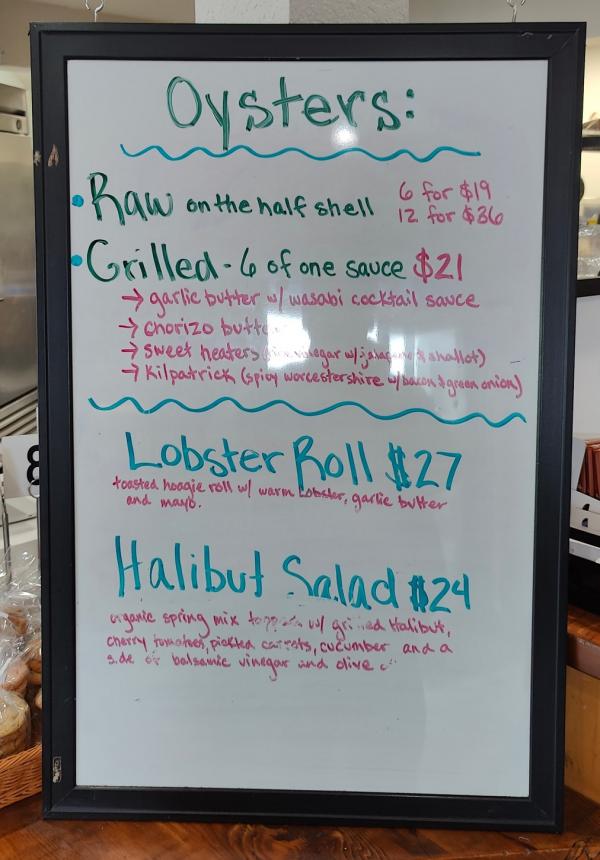 Oysters:
Raw on the half shell 6 for $19
12 for $36
Grilled - 6 of one sauce $21
→ garlic butter w/ wasabi cocktail sauce
→ chorizo butter
→ sweet heaters vinegar w/ jalapeno & shallot)
→ Kilpatrick (spicy worcestershire w/ bacon & green onion)
Lobster Roll $27
toasted hoagie roll w/ warm Lobster, garlic butter
and mayo.
Halibut Salad $24
organic spring mix topped w/ grilled Halibut,
cherry tomatoes, pickled carrots, cucumber and a
side of balsamic vinegar and olive
8